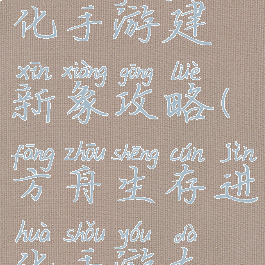 化手游建
xīn xiàng gōng lüè
新象攻略(
fāng zhōu shēng cún jìn
方舟生存进
huà shǒu yóu
化手游